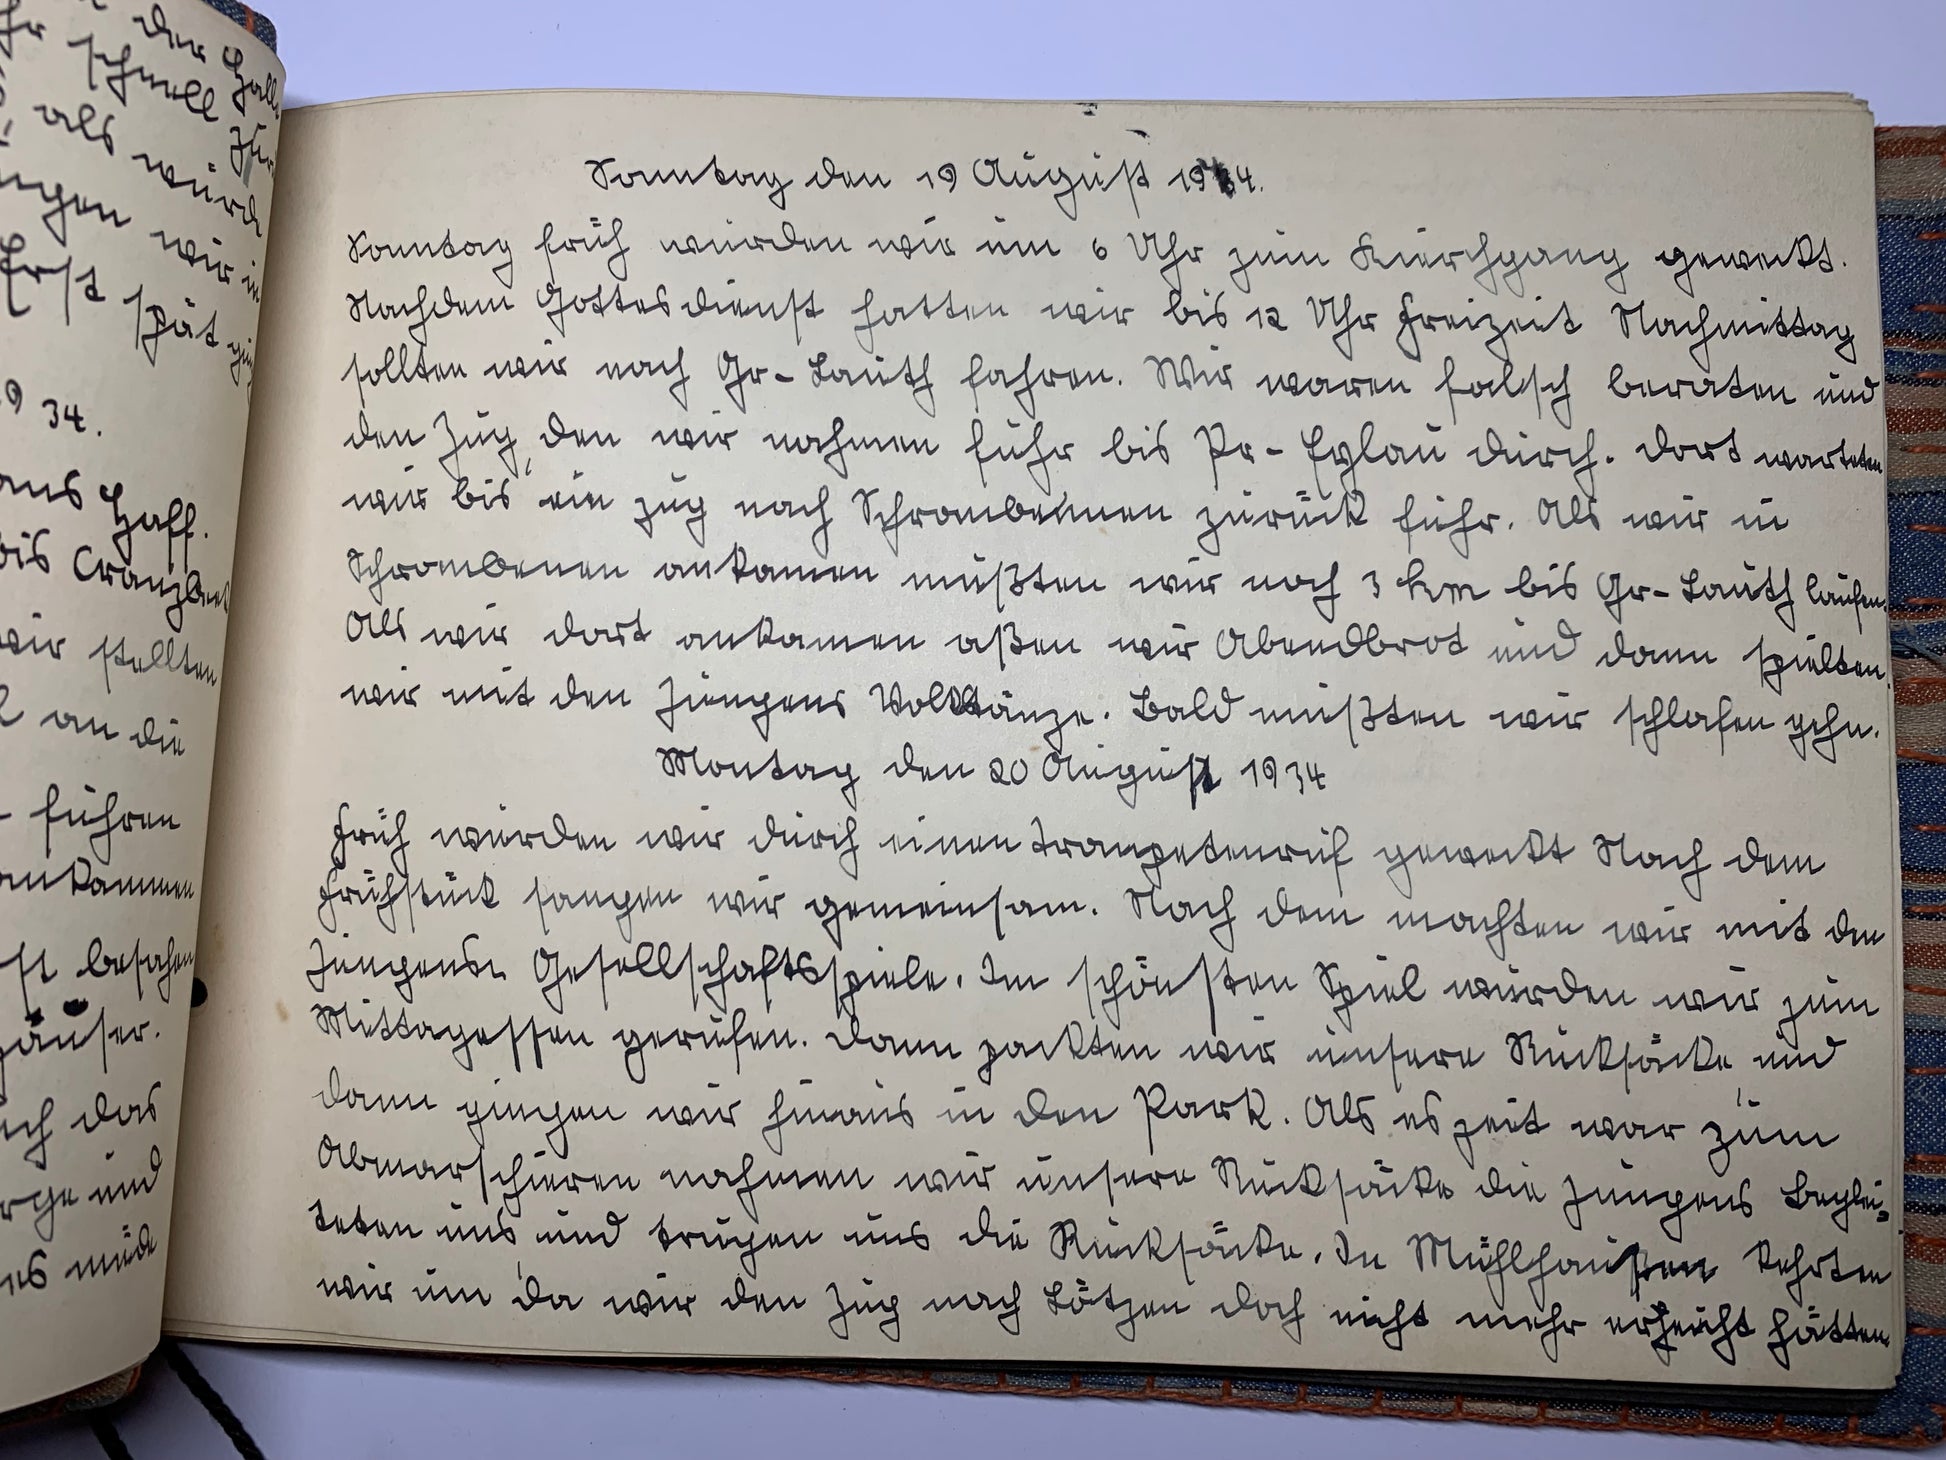 der Haff
schnell zur
als würd
ngen wir in
Erst spät gin
34.
ans Haff.
bis Cranzbeek
wir stellten
an die
führen
ankammen
besahen
häuser.
das
und
es müde
Sonntag den 19 August 1934.
Sonntag früh wurden wir um 6 Uhr zum Kierchgang geweckt.
Nachdem Gottesdienst hatten wir bis 12 Uhr Freizeit Nachmittag
sollten wir nach Gr-Lauth fahren. Wir waren falsch beraten und
den Zug, den wir nahmen fuhr bis Pr-Eylau durch. Dort warteten
wir bis ein Zug nach Schrombehnen zurück fuhr. Als wir in
Schrombenen ankamen mußten wir noch 3 km bis Gr-Lauth laufen.
Als wir dort ankamen aßen wir Abendbrot und dann spielten
wir mit den Jungens Volkstänze. Bald mußten wir schlafen gehn.
Montag den 20 August 1934
Früh wurden wir durch einen Trompetenruf geweckt Nach dem
Frühstück sangen wir gemeinsam. Nach dem machten wir mit den
Jungens Gesellschaftsspiele. Im schönsten Spiel wurden wir zum
Mittagessen gerufen. Dann packten wir unsere Rücksäcke und
dann gingen wir hinaus in den Park. Als es zeit war zum
Abmarschieren nahmen wir unsere Rücksäcke die Jungens Beglei=
teten uns und trugen uns die Rucksäcke. In Mühlhaußen kehrten
wir um, da wir den Zug nach Lötzen doch nicht mehr erreicht hätten